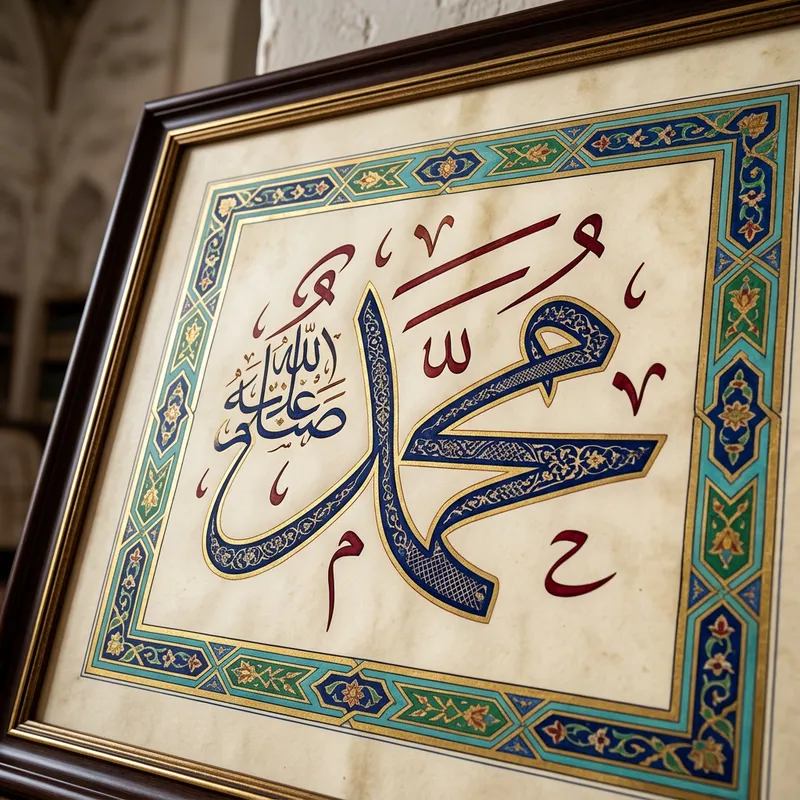 مُحَمَّد
صلى الله عليه وسلم
ح
م